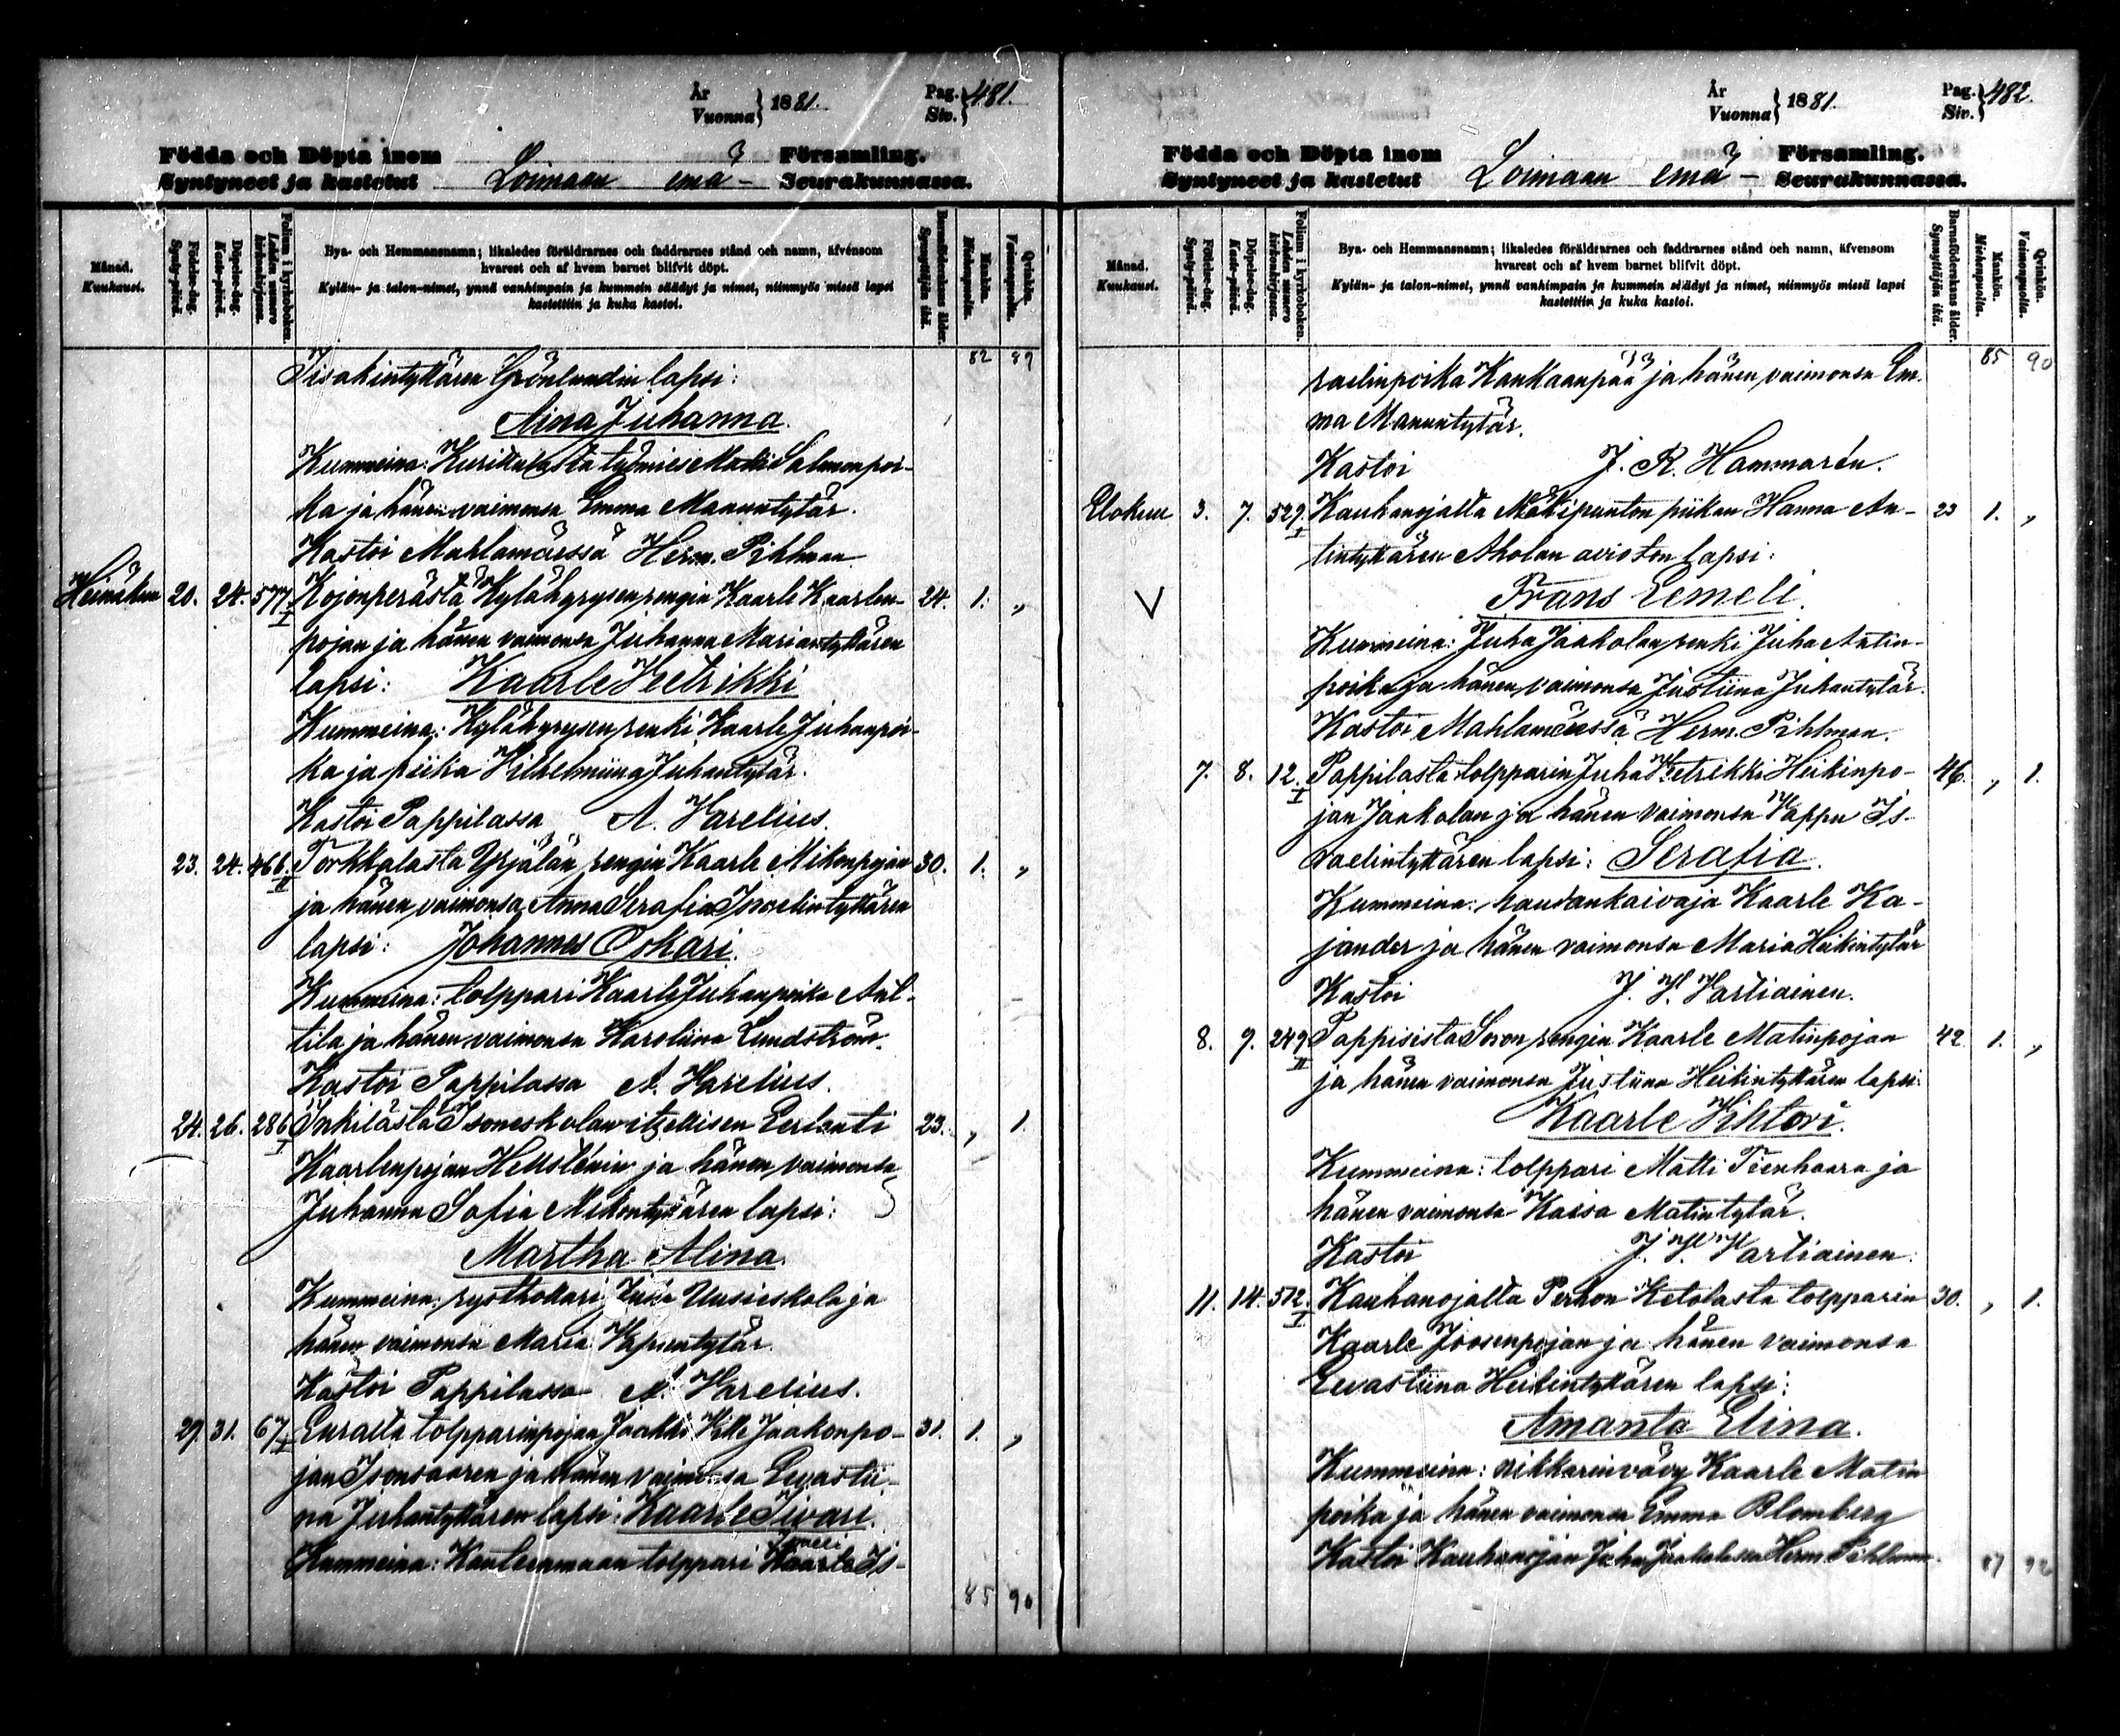 År
Vuonna } 1881.
Pag.
Siv. } 481.
Födda och Döpta inom Församling.
Syntyneet ja kastetut Loimaan emä- Seurakunnassa.
Månad.
Kuukausi.
Födelse-dag.
Synty-päivä.
Döpelse-dag.
Kaste-päivä.
Folium i kyrkoboken.
Lehden numero kirkonkirjassa.
Bya- och Hemmansnamn; likaledes föräldrarnes och faddrarnes stånd och namn, äfvensom
hvarest och af hvem barnet blifvit döpt.
Kylän- ja talon-nimet, ynnä vanhimpain ja kummein säädyt ja nimet, niinmyös missä lapsi
kastettiin ja kuka kastoi.
Barnaföderskans ålder.
Synnyttäjän ikä.
Mankön.
Miehenpuolta.
Qvinkön.
Vaimonpuolta.
82 89
Iisakintyttären Grönlundin lapsi:
Aina Juhanna.
Kummeina: työmies Matti Salomonpoi-
ka ja hänen vaimonsa Emma Manuntytär.
Kastoi Mahlamäessä Herm. Pihlman
Heinäkuu 20. 24. 577 I Kojonperästä Kylähyrysen rengin Kaarle Kaarlen- 24. 1. „
pojan ja hänen vaimonsa Juhanna Mariantyttären
lapsi: Kaarle Vietrikki
Kummeina: Kylähyrysen renki Kaarle Juhanpoi-
ka ja piika Vilhelmiina Juhantytär.
Kastoi Pappilassa A. Varelius.
23. 24. 466. II Torkkalasta Yrjälän rengin Kaarle Mikonpojan 30. 1. „
ja hänen vaimonsa Anna Serafia Israelintyttären
lapsi: Johannes Oskari.
Kummeina: tolppari Kaarle Juhanpoika Ant-
tila ja hänen vaimonsa Karoliina Lundström.
Kastoi Pappilassa A. Varelius.
24. 26. 286 I Inkilästä Isoneskolan itsellisen Erlanti 23. „ 1.
Kaarlenpojan Hellsténin ja hänen vaimonsa
Juhanna Sofia Mikontyttären lapsi:
Martha Alina.
Kummeina: rysthollari Juha Uusieskola ja
hänen vaimonsa Maria Vapuntytär.
Kastoi Pappilassa A. Varelius.
29. 31. 67. I Eurasta tolpparinpojan Jaakko Ville Jaakonpo- 31. 1. „
jan Isonsaaren ja hänen vaimonsa Evastii-
na Juhantyttären lapsi: Kaarle Iivari.
Kummeina: Kanteenmaan tolppari Kaarle Is-
85 90
År
Vuonna } 1881.
Pag.
Siv. } 482.
Födda och Döpta inom Församling.
Syntyneet ja kastetut Loimaan emä- Seurakunnassa.
Månad.
Kuukausi.
Födelse-dag.
Synty-päivä.
Döpelse-dag.
Kaste-päivä.
Folium i kyrkoboken.
Lehden numero kirkonkirjassa.
Bya- och Hemmansnamn; likaledes föräldrarnes och faddrarnes stånd och namn, äfvensom
hvarest och af hvem barnet blifvit döpt.
Kylän- ja talon-nimet, ynnä vanhimpain ja kummein säädyt ja nimet, niinmyös missä lapsi
kastettiin ja kuka kastoi.
Barnaföderskans ålder.
Synnyttäjän ikä.
Mankön.
Miehenpuolta.
Qvinkön.
Vaimonpuolta.
85 90
raelinpoika Kankaanpää ja hänen vaimonsa Em-
ma Manuntytär.
Kastoi J. R. Hammarén.
Elokuu 3. 7. 529. I Kauhanojalta Mäkipunton piikan Hanna An- 23 1. „
tintyttären Aholan avioton lapsi:
V Frans Eemeli.
Kummeina: Juha Jaakolan renki Juha Antin-
poika ja hänen vaimonsa Justiina Juhantytär.
Kastoi Mahlamäessä Herm. Pihlman.
7. 8. 12. I Pappilasta tolpparin Juha Vietrikki Heikinpo- 46. „ 1.
jan Jaakolan ja hänen vaimonsa Vappu Is-
raelintyttären lapsi: Serafia.
Kummeina: haudankaivaja Kaarle Ka-
jander ja hänen vaimonsa Maria Heikintytär
Kastoi J. V. Vartiainen.
8. 9. 249 II Pappisista Soron rengin Kaarle Matinpojan 42 1. „
ja hänen vaimonsa Justiina Heikintyttären lapsi:
Kaarle Vihtori.
Kummeina: tolppari Matti Tienhaara ja
hänen vaimonsa Kaisa Matintytär.
Kastoi J. V. Vartiainen.
11. 14. 572. I Kauhanojalta Perhon Ketolasta tolpparin 30. „ 1.
Kaarle Joosenpojan ja hänen vaimonsa
Evastiina Heikintyttären lapsi:
Amanta Elina.
Kummeina: nikkarinvävy Kaarle Matin
poika ja hänen vaimonsa Emma Blomberg
Kastoi Kauhanojan Juha Jaakolassa Herm. Pihlman.
87 92